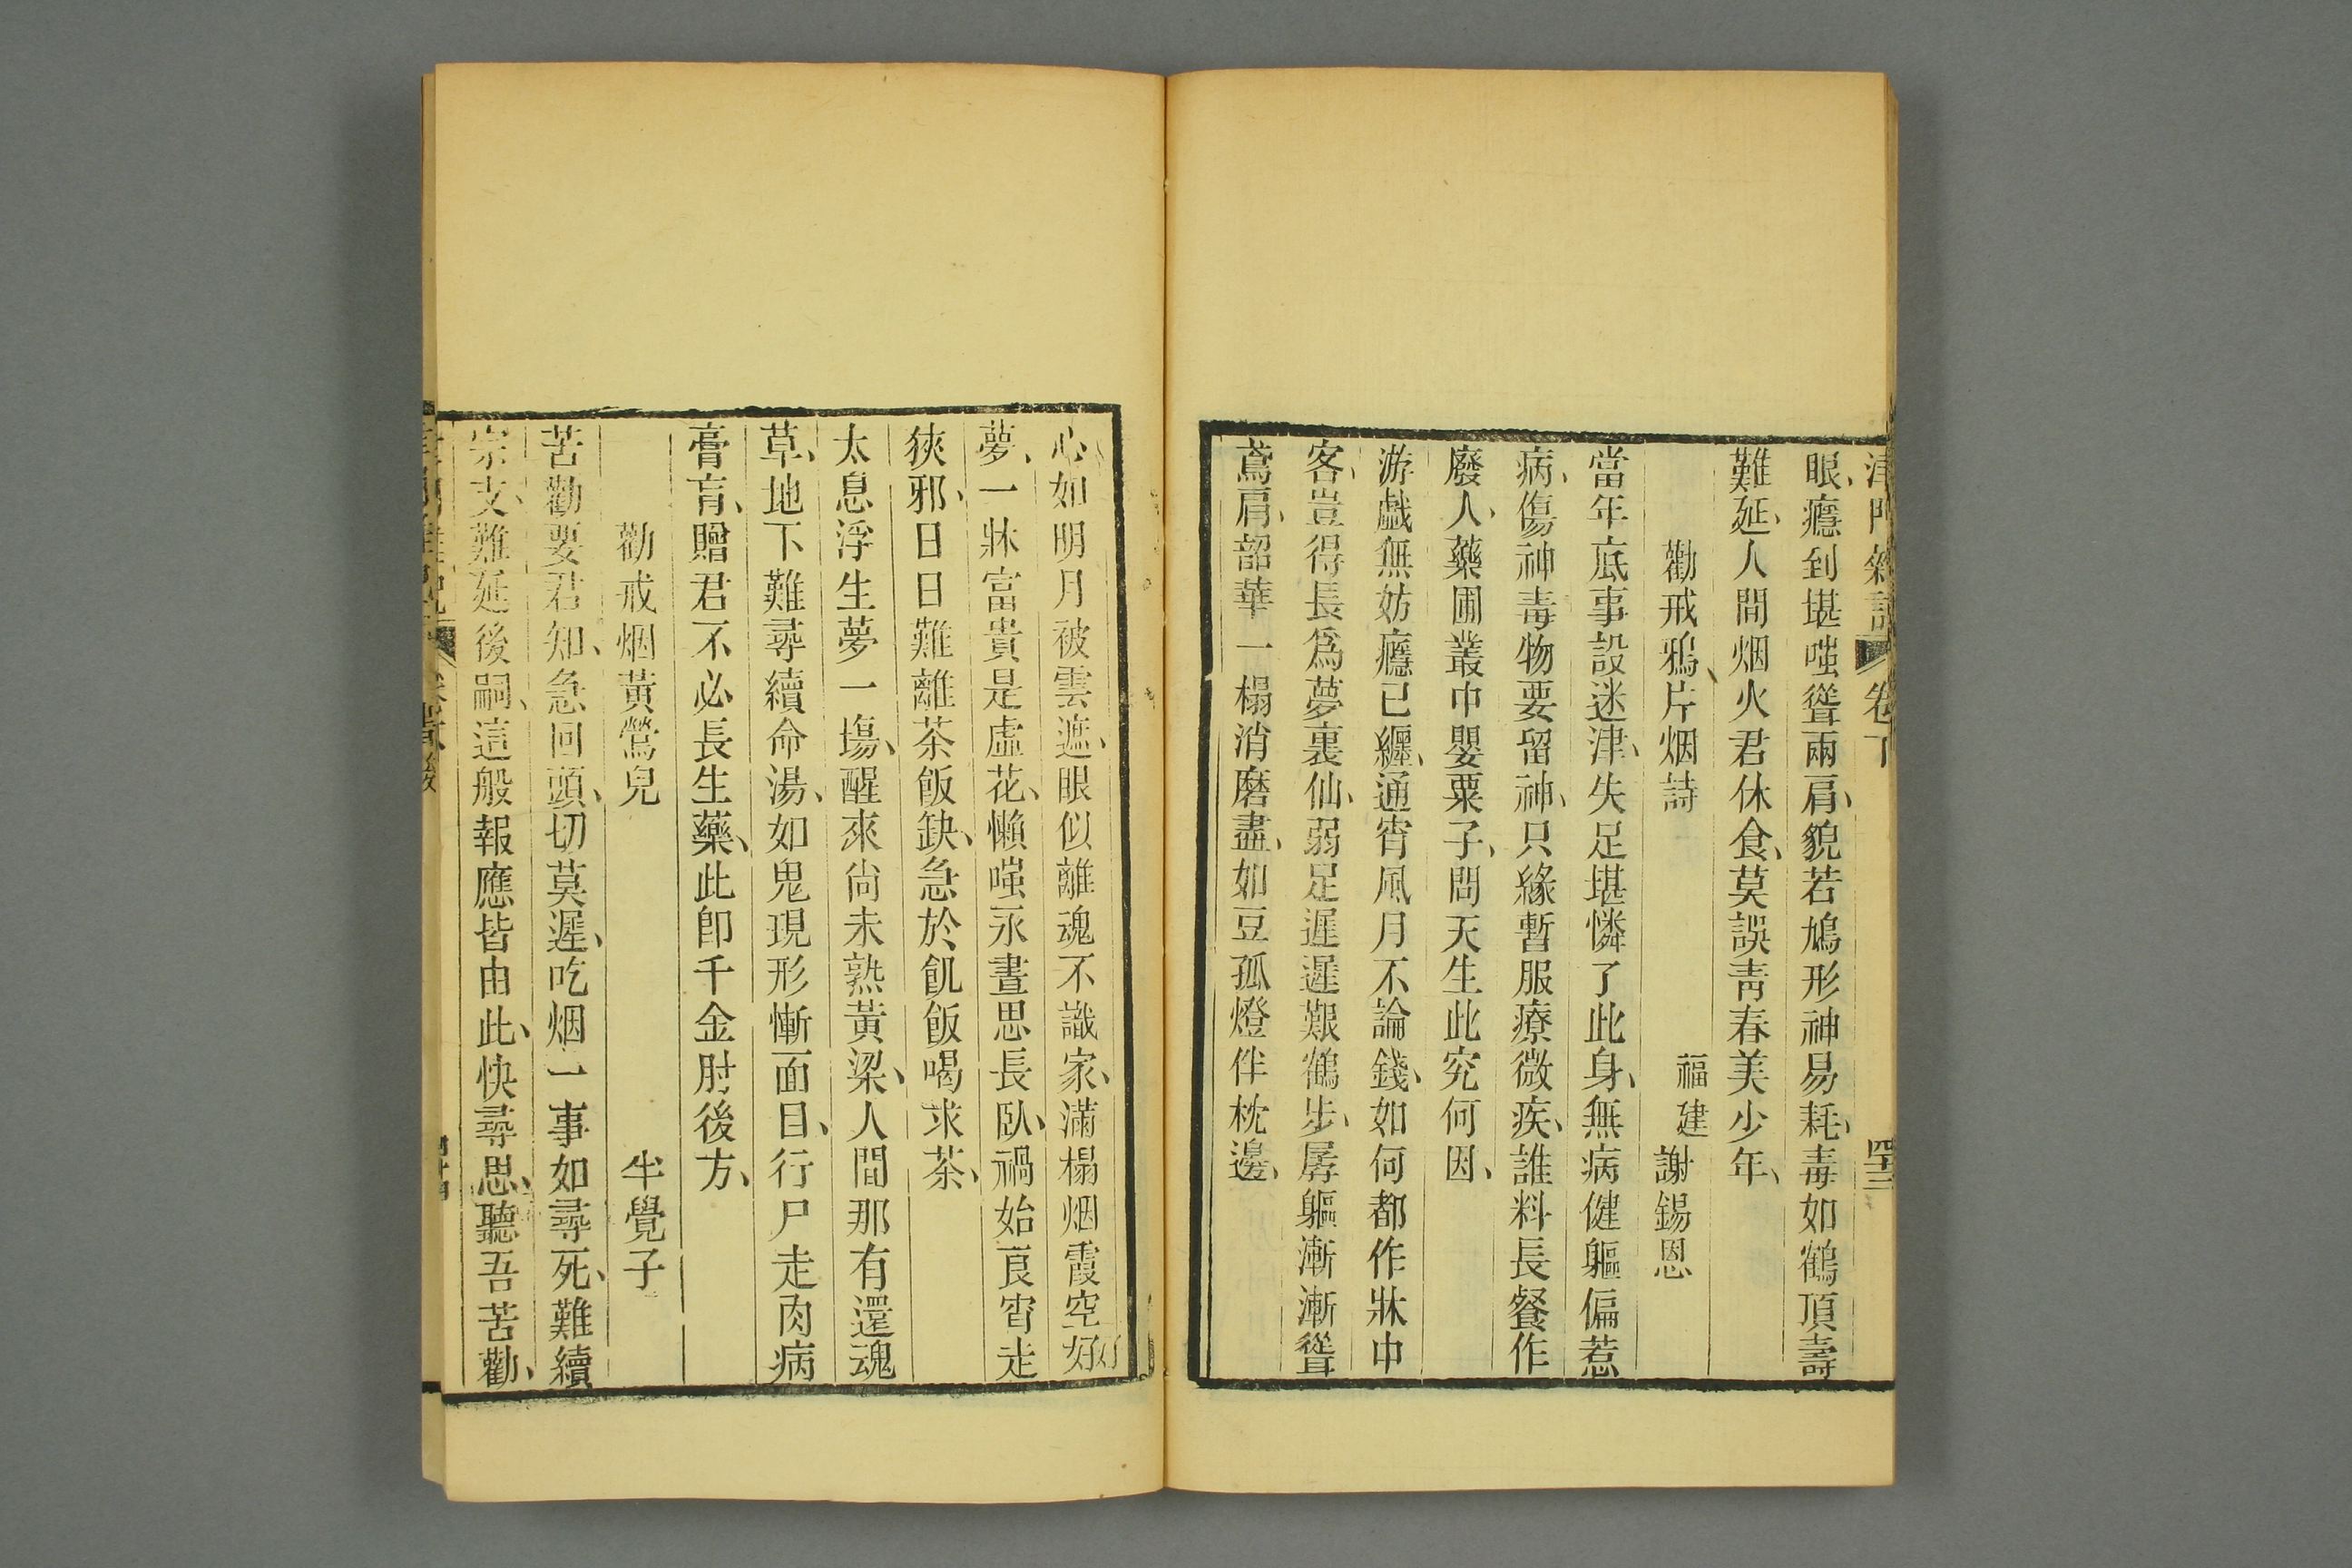 津門雜記 卷下 四十三
眼、癮到堪嗤聳兩肩、貌若鳩形神易耗、毒如鶴頂壽
難延、人間烟火君休食、莫誤靑春美少年、
勸戒鴉片烟詩 福建謝錫恩
當年底事設迷津、失足堪憐了此身、無病健軀偏惹
病、傷神毒物要留神、只緣暫服療微疾、誰料長餐作
廢人、藥圃叢中嬰粟子、問天生此究何因、
游戲無妨癮已纏、通宵風月不論錢、如何都作牀中
客、豈得長爲夢裏仙、弱足遲遲艱鶴步、孱軀漸漸聳
鳶肩、韶華一榻消磨盡、如豆孤燈伴枕邊、
心如明月被雲遮、眼似離魂不識家、滿榻烟霞空好
夢、一牀富貴是虛花、懶嗤永晝思長臥、禍始良宵走
狹邪、日日難離茶飯缺、急於飢飯喝求茶、
太息浮生夢一場、醒來尙未熟黃梁、人間那有還魂
草、地下難尋續命湯、如鬼現形慚面目、行尸走肉病
膏肓、贈君不必長生藥、此卽千金肘後方、
勸戒烟黃鶯兒 半覺子
苦勸要君知、急回頭、切莫遲、吃烟一事如尋死、難續
宗支、難延後嗣、這般報應皆由此、快尋思、聽吾苦勸、